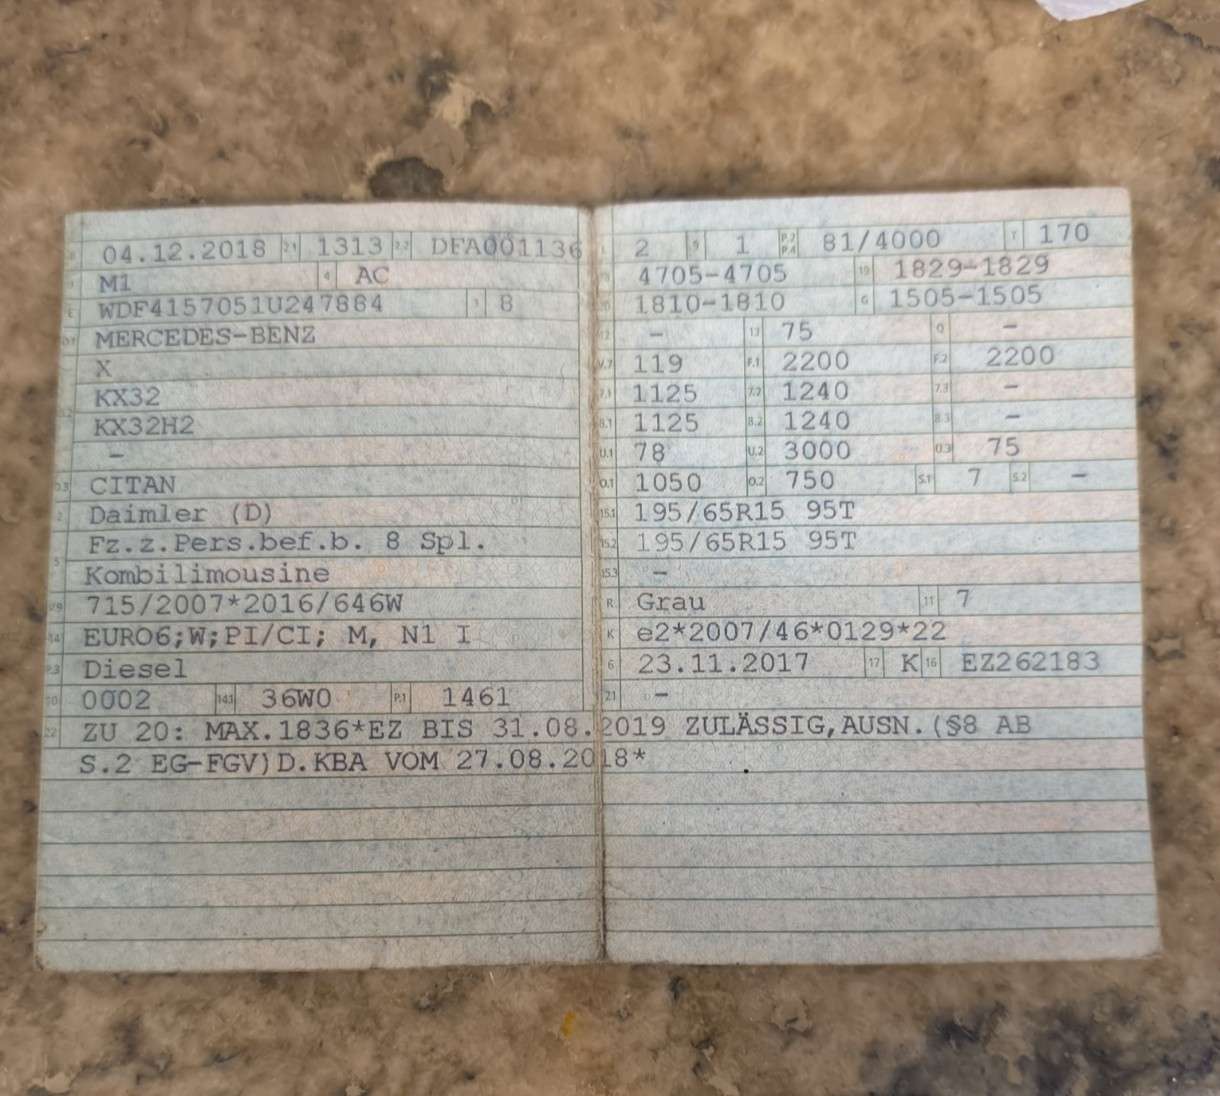 04.12.2018 2.1 1313 2.2 DFA001136
M1 4 AC
E WDF4157051U247884 3 8
D.1 MERCEDES-BENZ
X
KX32
KX32H2
–
D.3 CITAN
2 Daimler (D)
Fz.z.Pers.bef.b. 8 Spl.
5 Kombilimousine
V.9 715/2007*2016/646W
14 EURO6;W;PI/CI; M, N1 I
P.3 Diesel
10 0002 14.1 36W0 P.1 1461
22 ZU 20: MAX.1836*EZ BIS 31.08.2019 ZULÄSSIG,AUSN.(§8 AB
S.2 EG-FGV)D.KBA VOM 27.08.2018*
L 2 9 1 P.2 P.4 81/4000 T 170
18 4705-4705 19 1829-1829
20 1810-1810 G 1505-1505
12 – 13 75 Q –
V.7 119 F.1 2200 F.2 2200
7.1 1125 7.2 1240 7.3 –
8.1 1125 8.2 1240 8.3 –
U.1 78 U.2 3000 U.3 75
O.1 1050 O.2 750 S.1 7 S.2 –
15.1 195/65R15 95T
15.2 195/65R15 95T
15.3 –
R Grau 11 7
K e2*2007/46*0129*22
6 23.11.2017 17 K 16 EZ262183
21 –